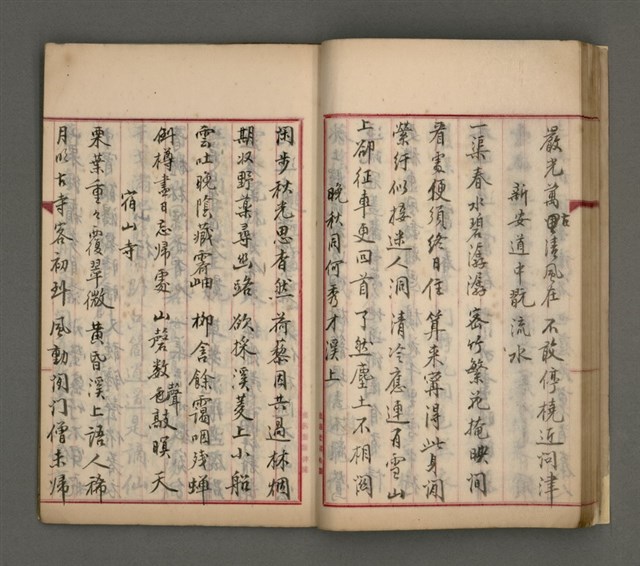 嚴光萬里清風在不敢停橈近問津
古
新安道中翫流水
一渠春水碧潺潺密竹繁花掩映間
看處便須終日住算來寧得此身閒
縈紆似接迷人洞清冷應連有雪山
上卻征車更回首了然塵土不相關
晚秋同何秀才溪上
閒步秋光思杳然荷藜因共過林烟
期收野藥尋幽路欲採溪菱上小船
雲吐晚陰藏霽岫柳含餘靄咽殘蟬
倒樽盡日忘歸處山磬數聲敲暝天
宿山寺
栗葉重々覆翠微黃昏溪上語人稀
月明古寺客初到風動閒門僧未歸